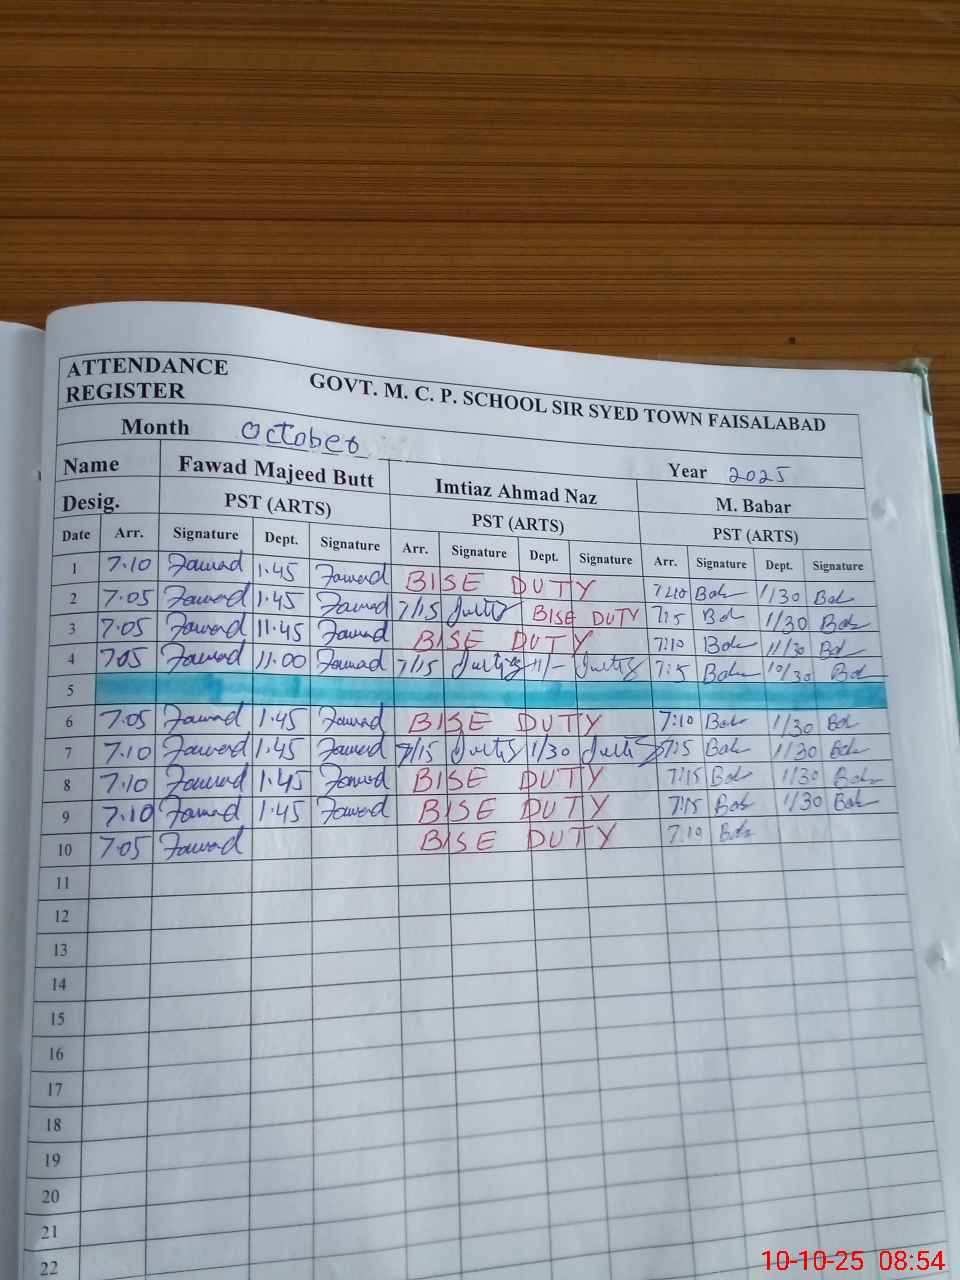 ATTENDANCE REGISTER GOVT. M. C. P. SCHOOL SIR SYED TOWN FAISALABAD
Month October Year 2025
Name Fawad Majeed Butt Imtiaz Ahmad Naz M. Babar
Desig. PST (ARTS) PST (ARTS) PST (ARTS)
Date Arr. Signature Dept. Signature Arr. Signature Dept. Signature Arr. Signature Dept. Signature
1 7.10 Fawad 1.45 Fawad BISE DUTY 7:10 1/30
2 7.05 Fawad 1.45 Fawad 7/15 BISE DUTY 7:15 1/30
3 7.05 Fawad 11.45 Fawad BISE DUTY 7:10 11/30
4 7.05 Fawad 11.00 Fawad 7/15 11/- 7:15 10/30
5
6 7.05 Fawad 1.45 Fawad BISE DUTY 7:10 1/30
7 7.10 Fawad 1.45 Fawad 7/15 1/30 7:15 1/30
8 7.10 Fawad 1.45 Fawad BISE DUTY 7:15 1/30
9 7.10 Fawad 1.45 Fawad BISE DUTY 7:15 1/30
10 7.05 Fawad BISE DUTY 7:10
11
12
13
14
15
16
17
18
19
20
21
22
10-10-25 08:54